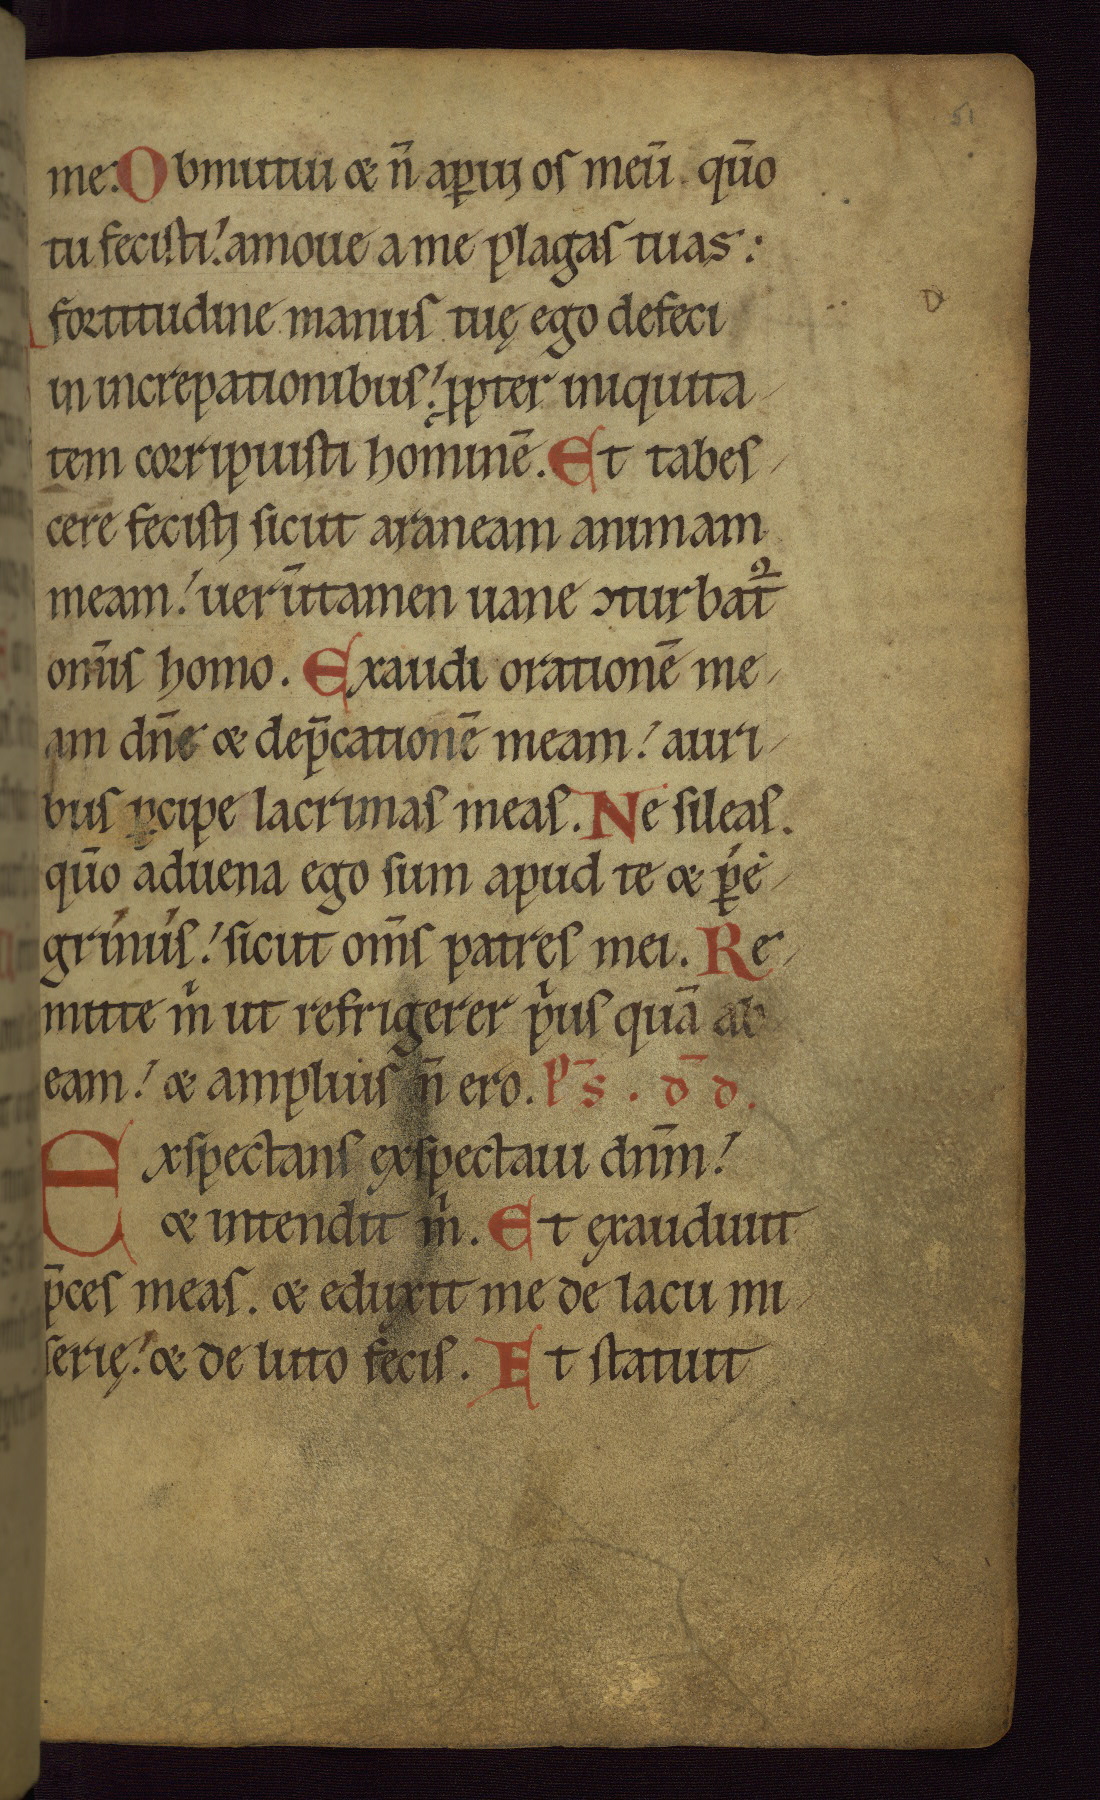 51
me. Obmutui & n̄ ap̲ui os meū. qūo
tu fecisti! amoue a me plagas tuas:
D
fortitudine manus tuę ego defeci
in increpationibus! ꝓpter iniquita
tem corripuisti hominē. Et tabes
cere fecisti sicut araneam animam
meam! uerūtamen uane ↄturbat̄
om̄is homo. Exaudi orationē me
am dn̄e & dep̄cationē meam! auri
bus ꝑcipe lacrimas meas. Ne sileas.
qūo aduena ego sum apud te & ꝑe
grinus! sicut om̄s patres mei. Re
mitte m̍ ut refrigerer p̍us quā ab
eam! & amplius n̄ ero. P̄s. d̄d.
Exspectans exspectaui dn̄m!
& intendit m̍. Et exaudiuit
p̄ces meas. & eduxit me de lacu mi
serię! & de luto fecis. Et statuit